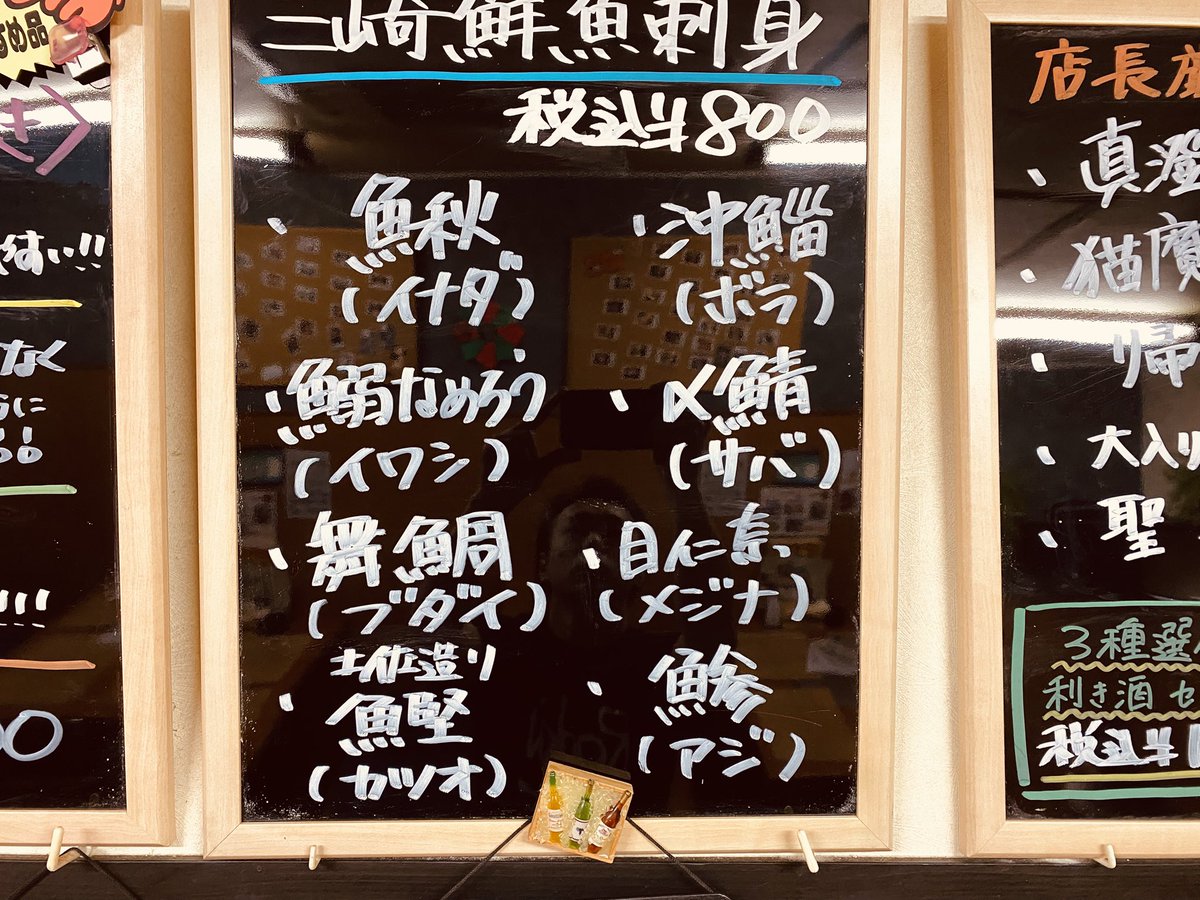 すめ品
き
すい!!
なく
らに
!!!
00
三崎鮮魚刺身
税込¥800
・鰍
(イナダ)
・沖鯔
(ボラ)
・鰯なめろう
(イワシ)
・〆鯖
(サバ)
・舞鯛
(ブダイ)
・目仁奈
(メジナ)
土佐造り
・鰹
(カツオ)
・鯵
(アジ)
店長
・真澄
・猫魔
・帰
・大入り
・聖
3種選
利き酒セ
税込¥1